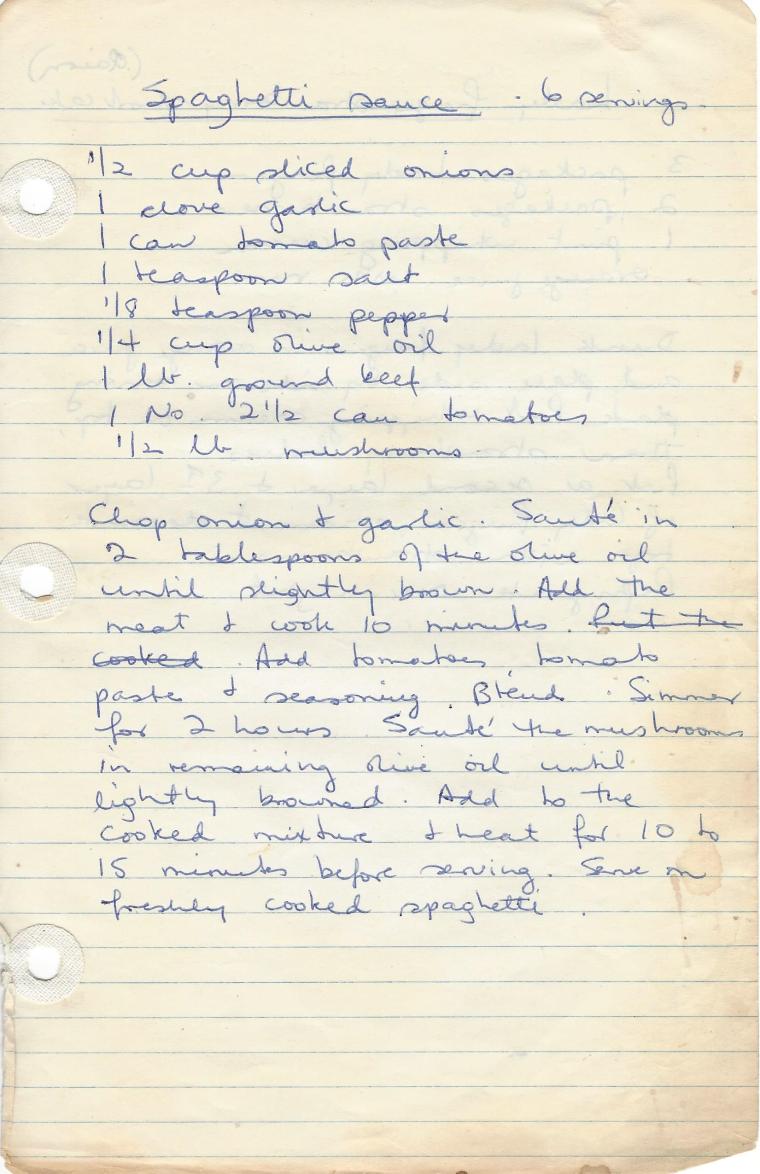 Spaghetti sauce - 6 servings.
1/2 cup sliced onions
1 clove garlic
1 can tomato paste
1 teaspoon salt
1/8 teaspoon pepper
1/4 cup olive oil
1 lb. ground beef
1 No. 2 1/2 can tomatoes
1/2 lb. mushrooms.
Chop onion & garlic. Sauté in
2 tablespoons of the olive oil
until slightly brown. Add the
meat & cook 10 minutes. Put the
cooked. Add tomatoes, tomato
paste & seasoning. Blend. Simmer
for 2 hours. Sauté the mushrooms
in remaining olive oil until
lightly browned. Add to the
cooked mixture & heat for 10 to
15 minutes before serving. Serve on
freshly cooked spaghetti.